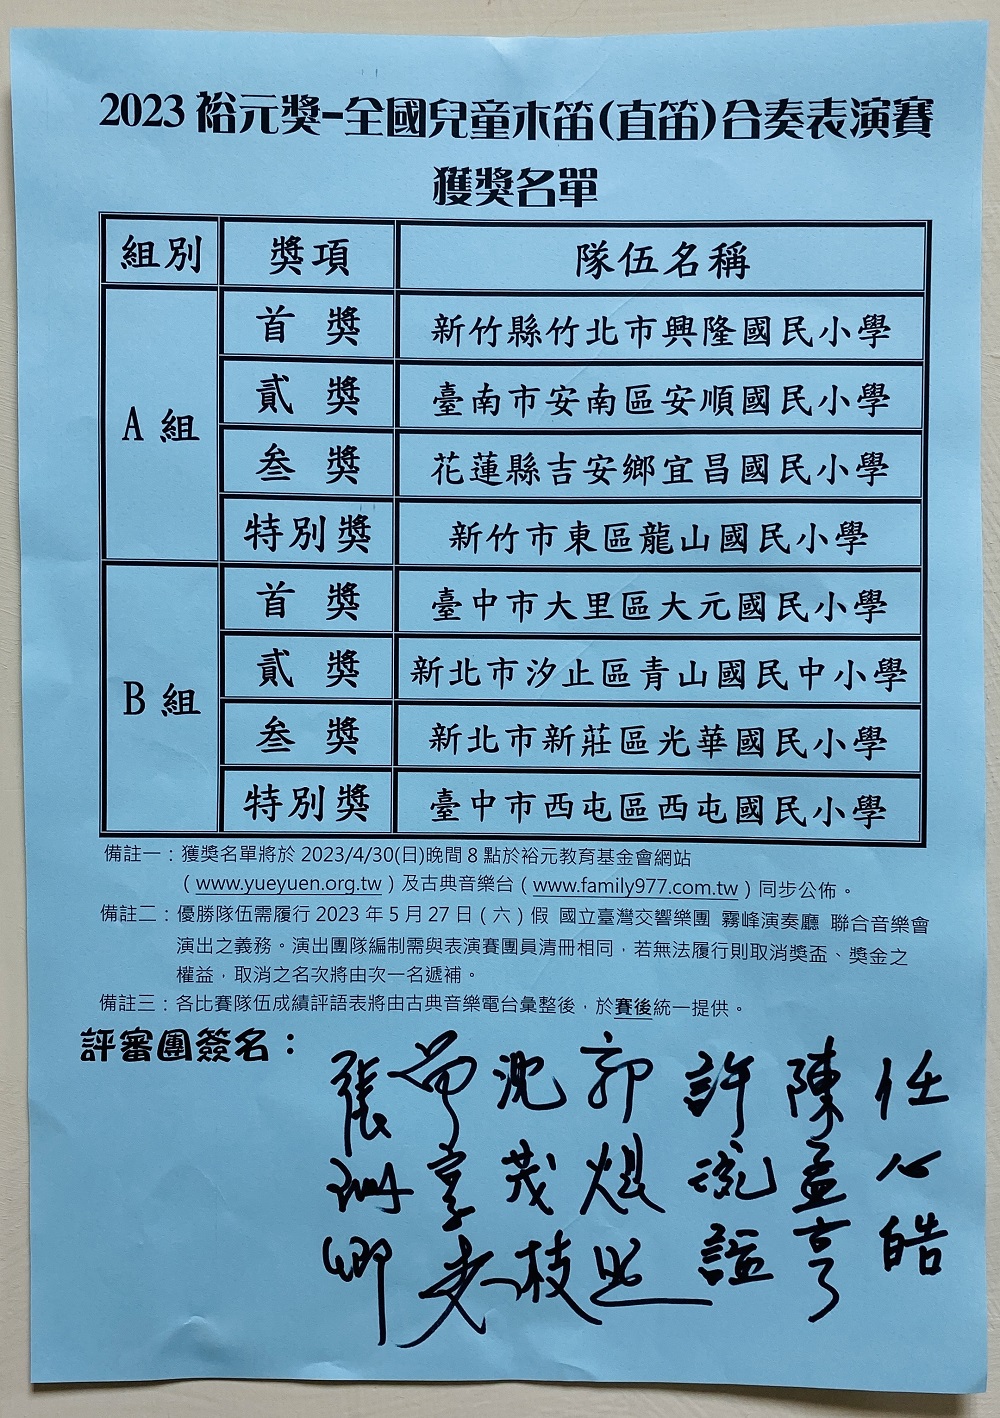 2023 裕元獎-全國兒童木笛(直笛)合奏表演賽
獲獎名單
組別 獎項 隊伍名稱
A 組
首 獎 新竹縣竹北市興隆國民小學
貳 獎 臺南市安南區安順國民小學
叁 獎 花蓮縣吉安鄉宜昌國民小學
特別獎 新竹市東區龍山國民小學
B 組
首 獎 臺中市大里區大元國民小學
貳 獎 新北市汐止區青山國民中小學
叁 獎 新北市新莊區光華國民小學
特別獎 臺中市西屯區西屯國民小學
備註一：獲獎名單將於 2023/4/30(日)晚間 8 點於裕元教育基金會網站
（www.yueyuen.org.tw）及古典音樂台（www.family977.com.tw）同步公佈。
備註二：優勝隊伍需履行 2023 年 5 月 27 日（六）假 國立臺灣交響樂團 霧峰演奏廳 聯合音樂會
演出之義務。演出團隊編制需與表演賽團員清冊相同，若無法履行則取消獎盃、獎金之
權益，取消之名次將由次一名遞補。
備註三：各比賽隊伍成績評語表將由古典音樂電台彙整後，於賽後統一提供。
評審團簽名：
任心皓
陳孟亨
沈茂枝